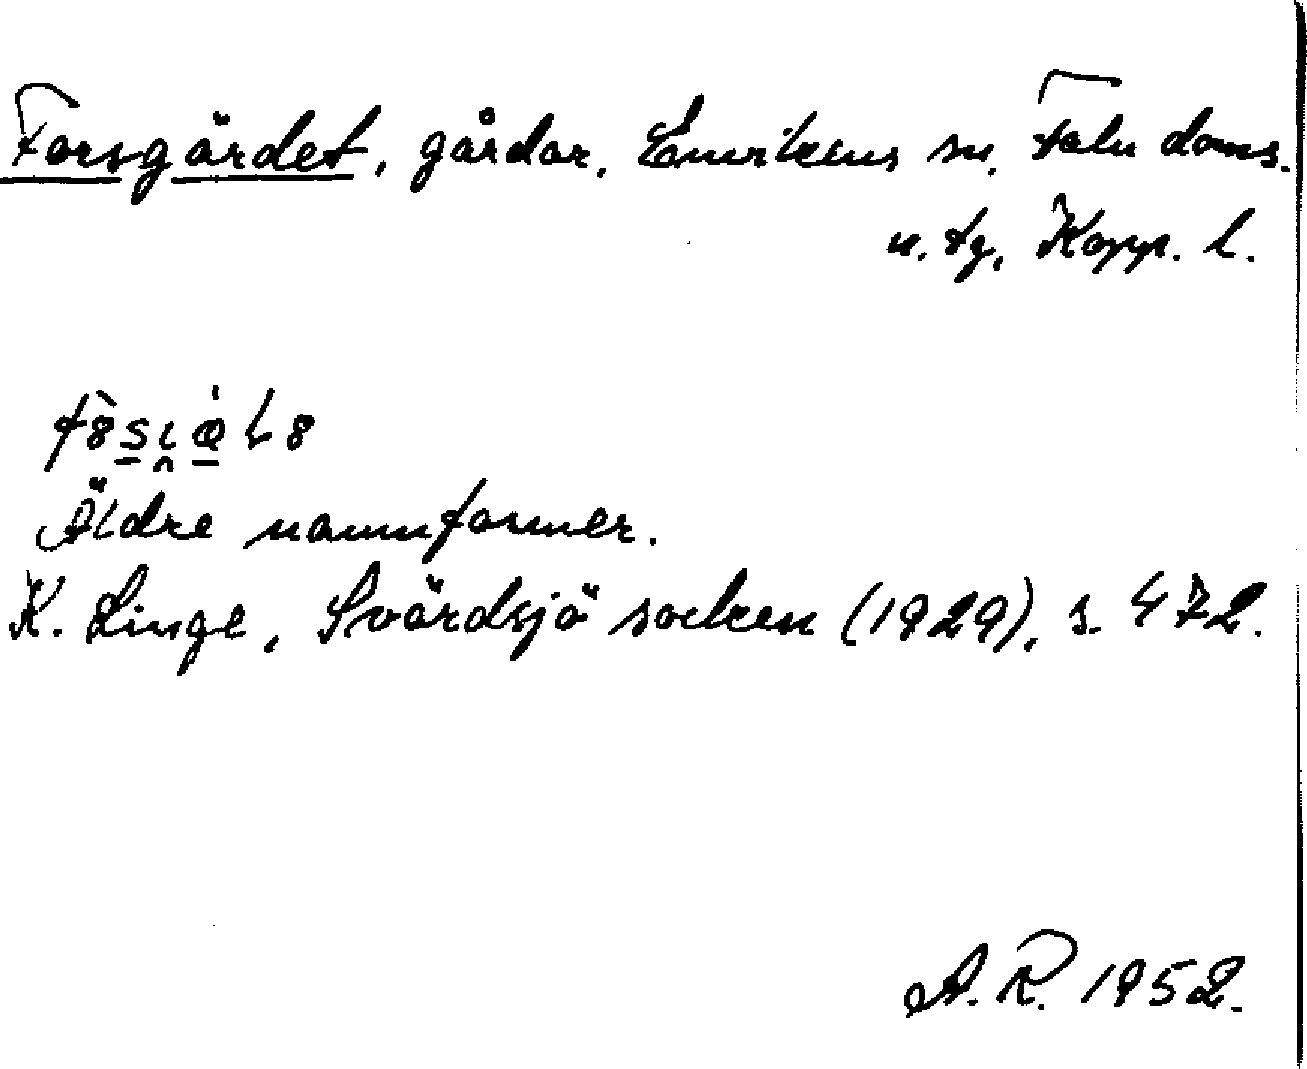 Forsgärdet, gårdar, Envikens sn, Falu doms.
n. tg, Kopp. l.
Äldre namnformer.
K. Linge, Svärdsjö socken (1929), s. 472.
A. R. 1952.